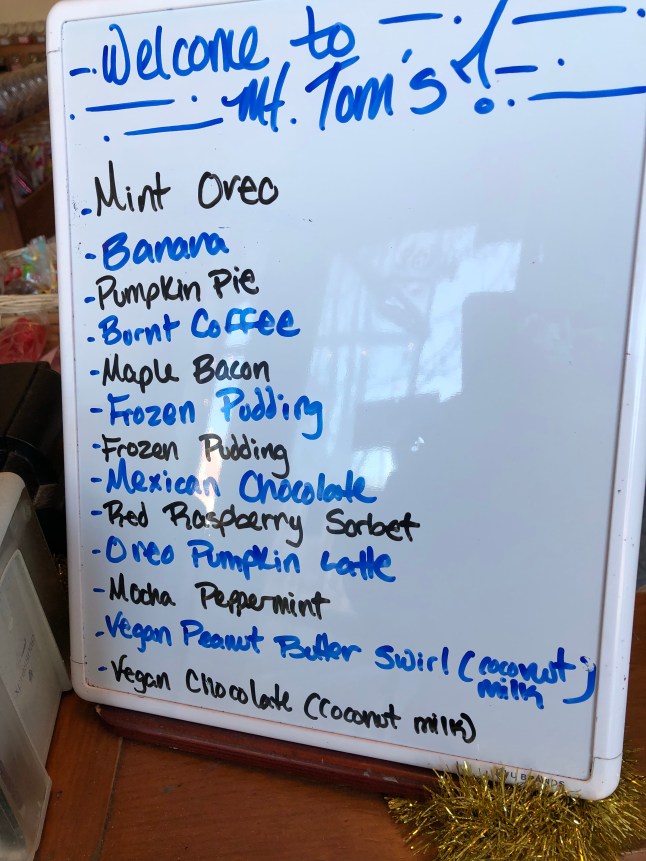 -Welcome to
Mt. Tom's!
-Mint Oreo
-Banana
-Pumpkin Pie
-Burnt Coffee
-Maple Bacon
-Frozen Pudding
-Frozen Pudding
-Mexican Chocolate
-Red Raspberry Sorbet
-Oreo Pumpkin Latte
-Mocha Peppermint
-Vegan Peanut Butter Swirl (coconut
milk)
-Vegan Chocolate (coconut milk)